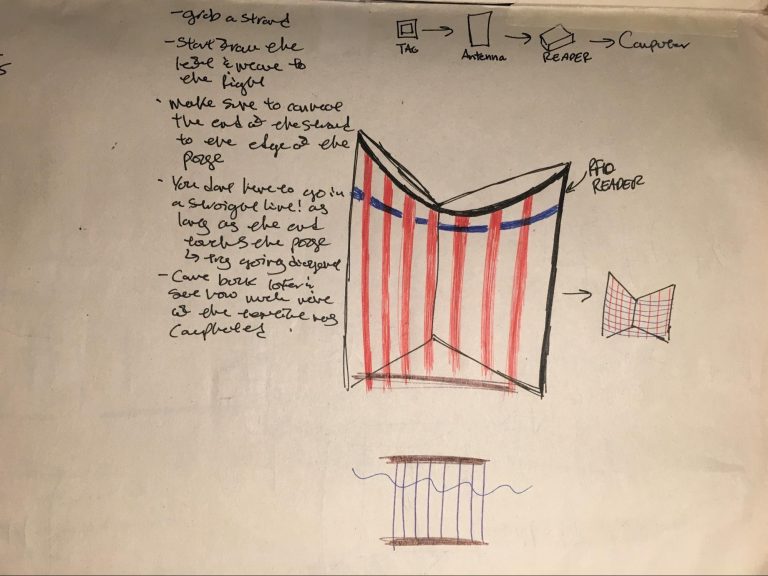 - grab a strand
- Start from the
left & weave to
the right
· Make sure to connect
the end of the strand
to the edge of the
page
· You dont have to go in
a straight line! as
long as the end
touches the page
↳ try going diagonal
- Come back later &
see how much more
of the textile was
Completed
TAG → Antenna → READER → Computer
RFID
READER